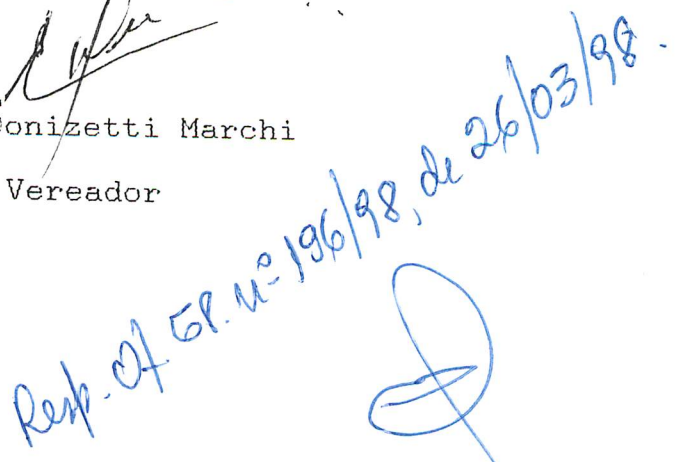 onizetti Marchi
Vereador
Resp. Of. GP. nº 196/98, de 26/03/98.